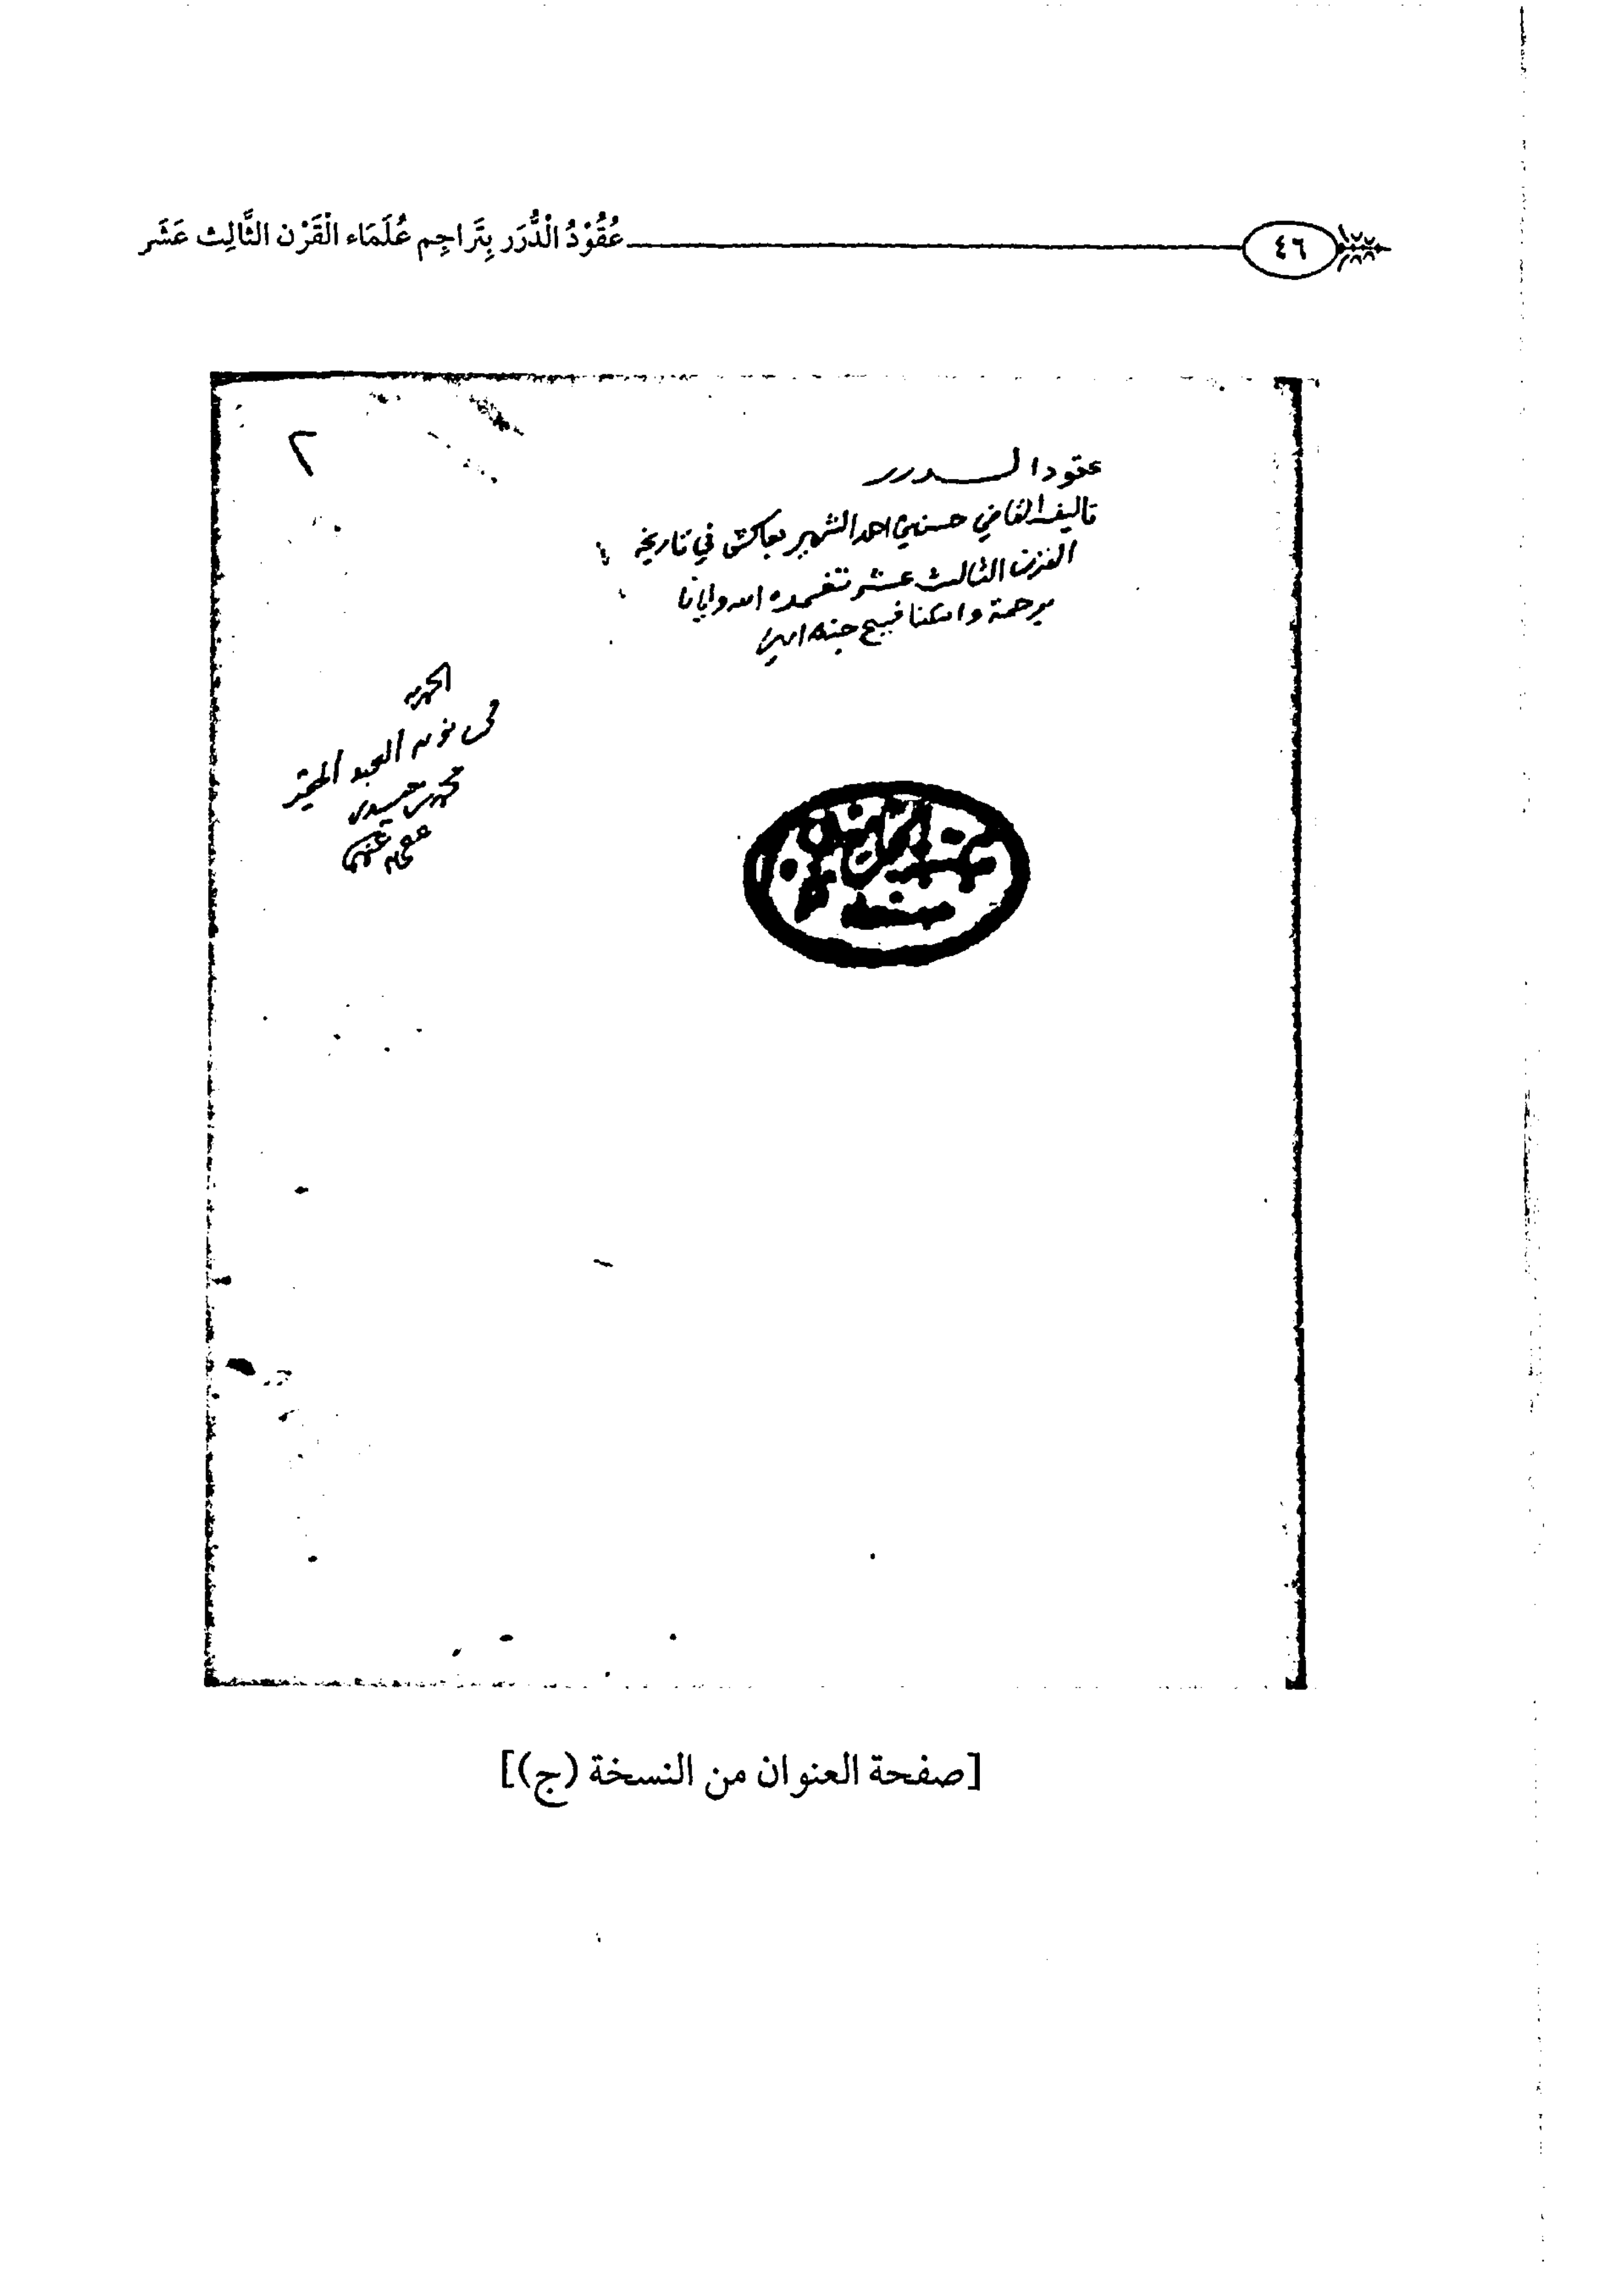 ٤٦ عُقُوْدُ الْدُّرَر بِتَرَاجِم عُلَمَاء الْقَرْن الثَّالِث عَشَر
٢
عقود الدرر
تاليف القاضي حسن بن احمد الشهير بعاكش في تاريخ
القرن الثالث عشر تغمده الله وايانا
برحمة واسكنا فسيح جنته امين
الحمد لله
من العبد الحقير
محمد
[صفحة العنوان من النسخة (ج)]